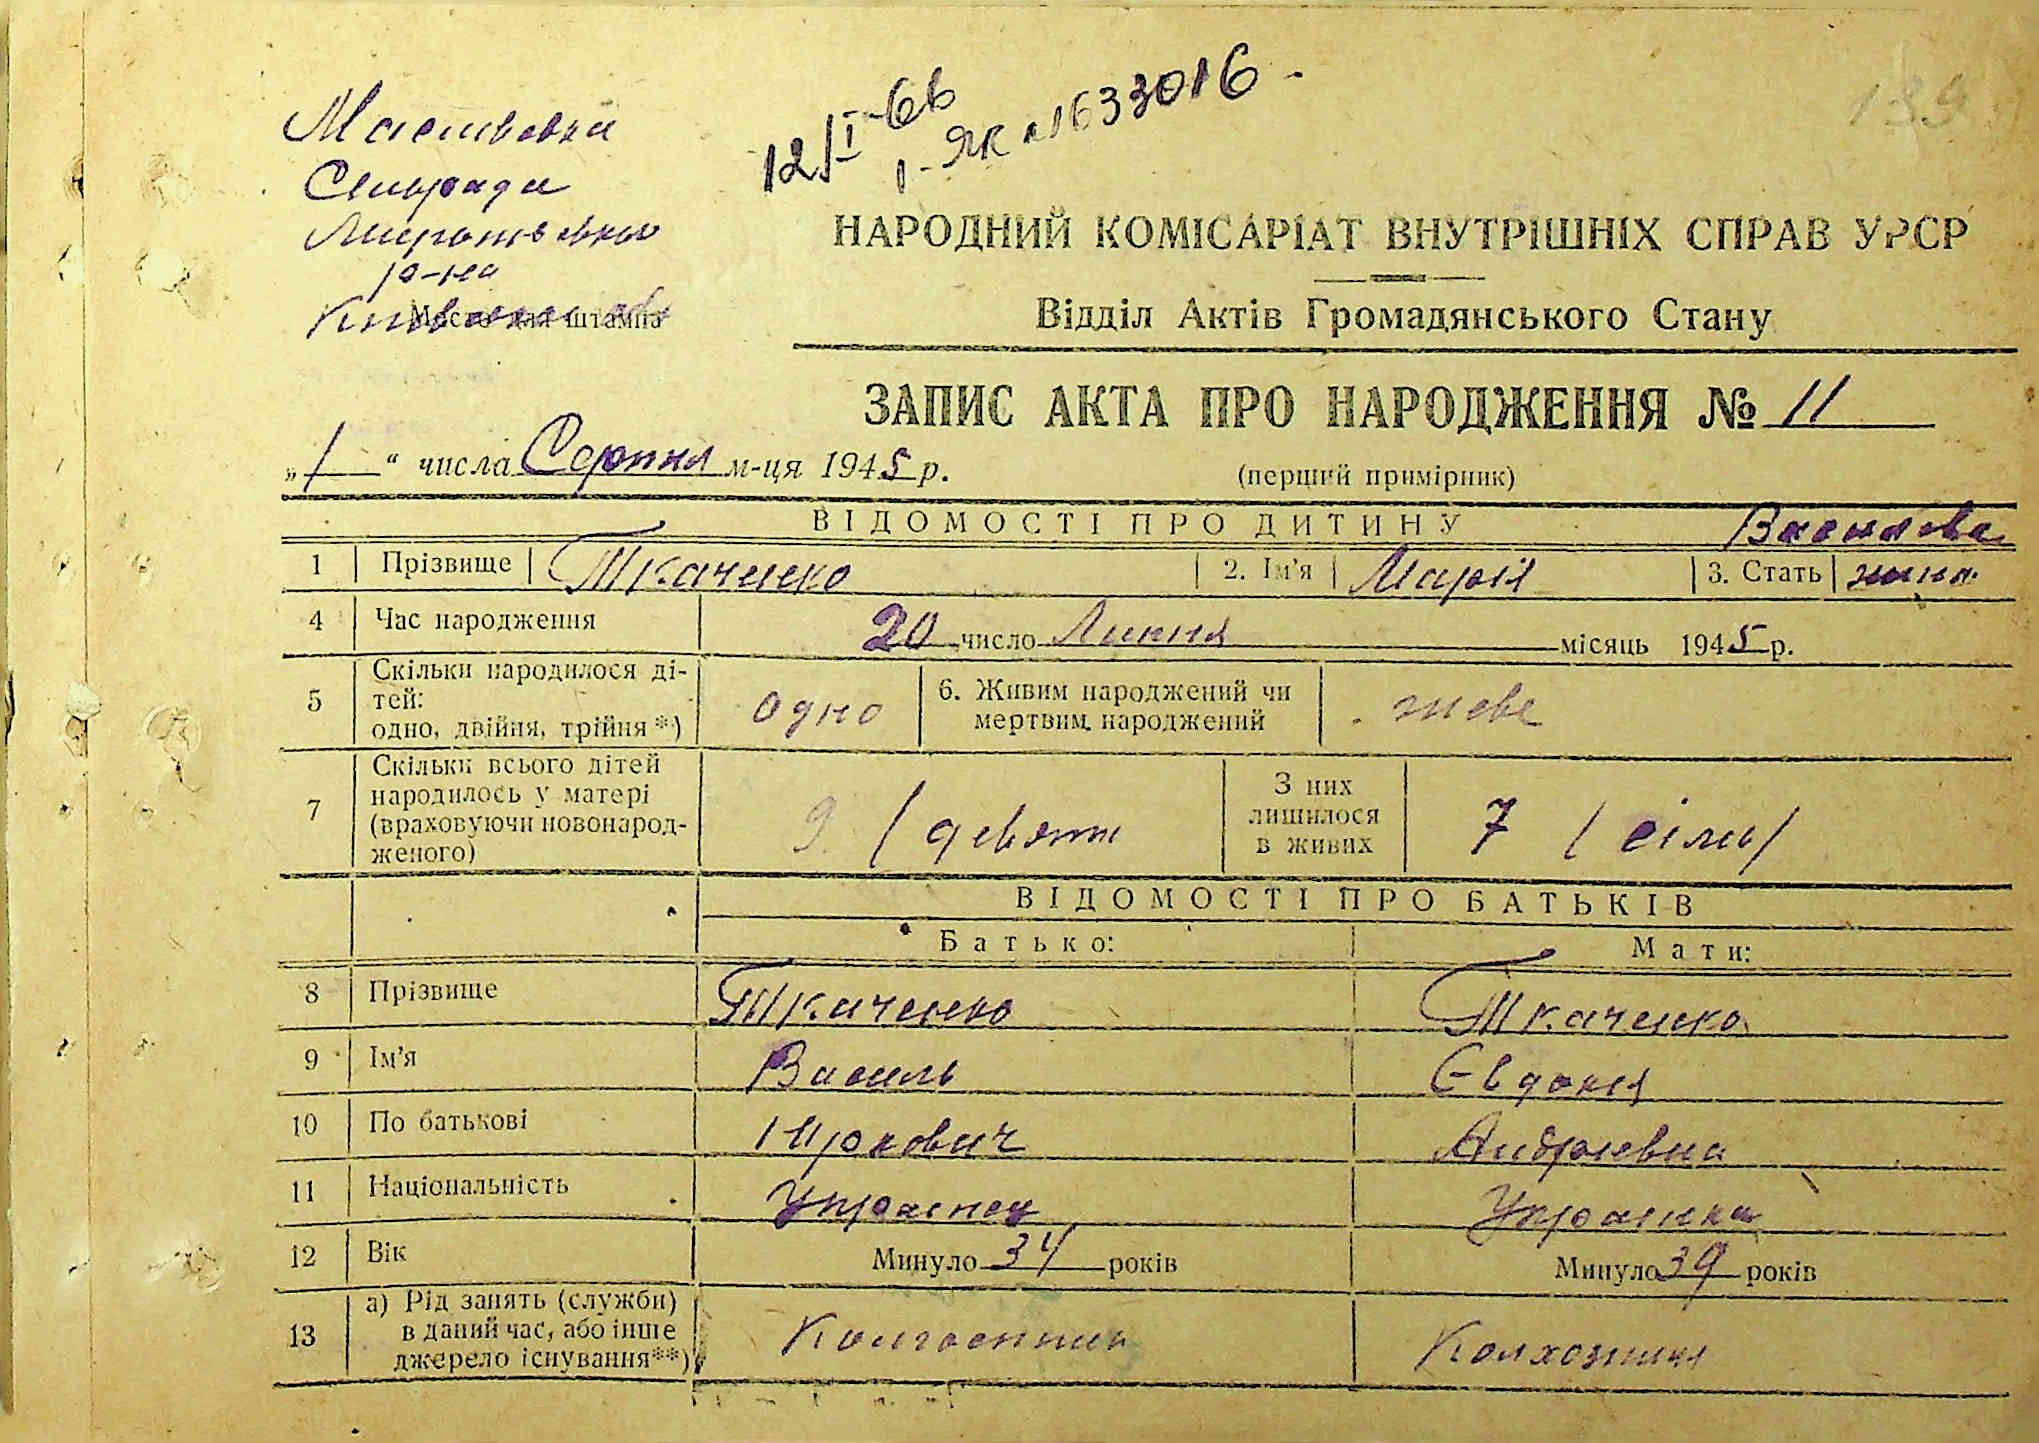 12/I-66
1-ЯК №1633016
139
Сільради
р-на
Місце для штампа
НАРОДНИЙ КОМІСАРІАТ ВНУТРІШНІХ СПРАВ УРСР
Відділ Актів Громадянського Стану
ЗАПИС АКТА ПРО НАРОДЖЕННЯ № 11
„1“ числа Серпня м-ця 1945 р. (перший примірник)
ВІДОМОСТІ ПРО ДИТИНУ
1 Прізвище Ткаченко 2. Ім'я Марія 3. Стать
4 Час народження 20 число Липня місяць 1945 р.
5 Скільки народилося ді-
тей:
одно, двійня, трійня*) одно 6. Живим народжений чи
мертвим народжений живе
7 Скільки всього дітей
народилось у матері
(враховуючи новонарод-
женого) 9 /девять З них
лишилося
в живих 7 /сім/
ВІДОМОСТІ ПРО БАТЬКІВ
Батько: Мати:
8 Прізвище Ткаченко Ткаченко
9 Ім'я Василь Євдокія
10 По батькові Маркович Андріевна
11 Національність Украінец Украінка
12 Вік Минуло 34 років Минуло 39 років
13 а) Рід занять (служби)
в даний час, або інше
джерело існування**) Колгоспник